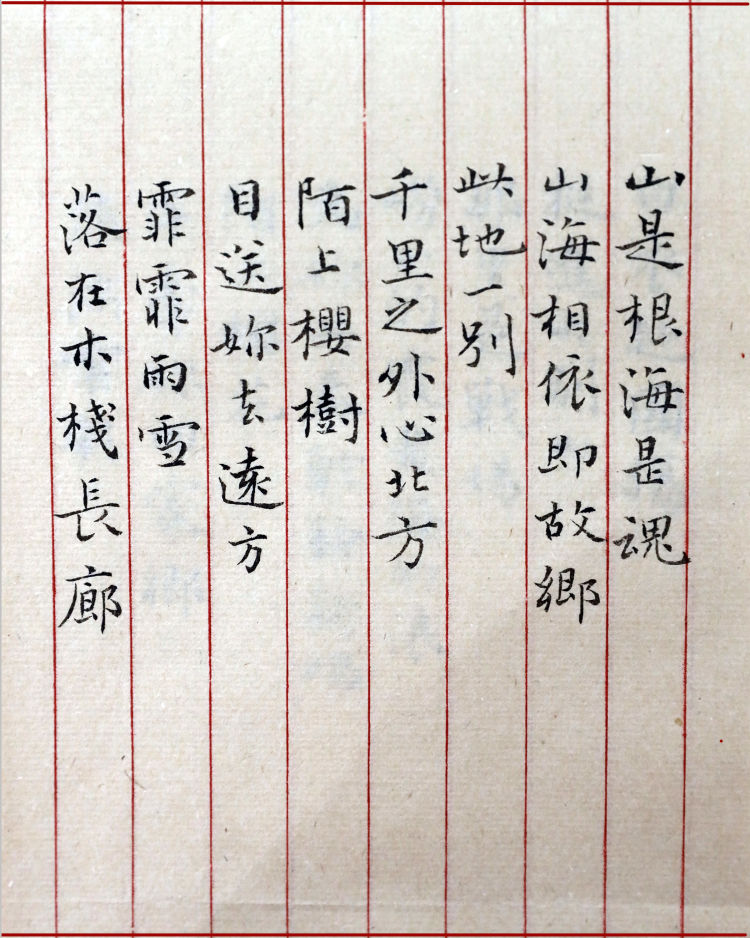 山是根海是魂
山海相依即故鄉
此地一别
千里之外心北方
陌上櫻樹
目送妳去遠方
霏霏雨雪
落在木棧長廊